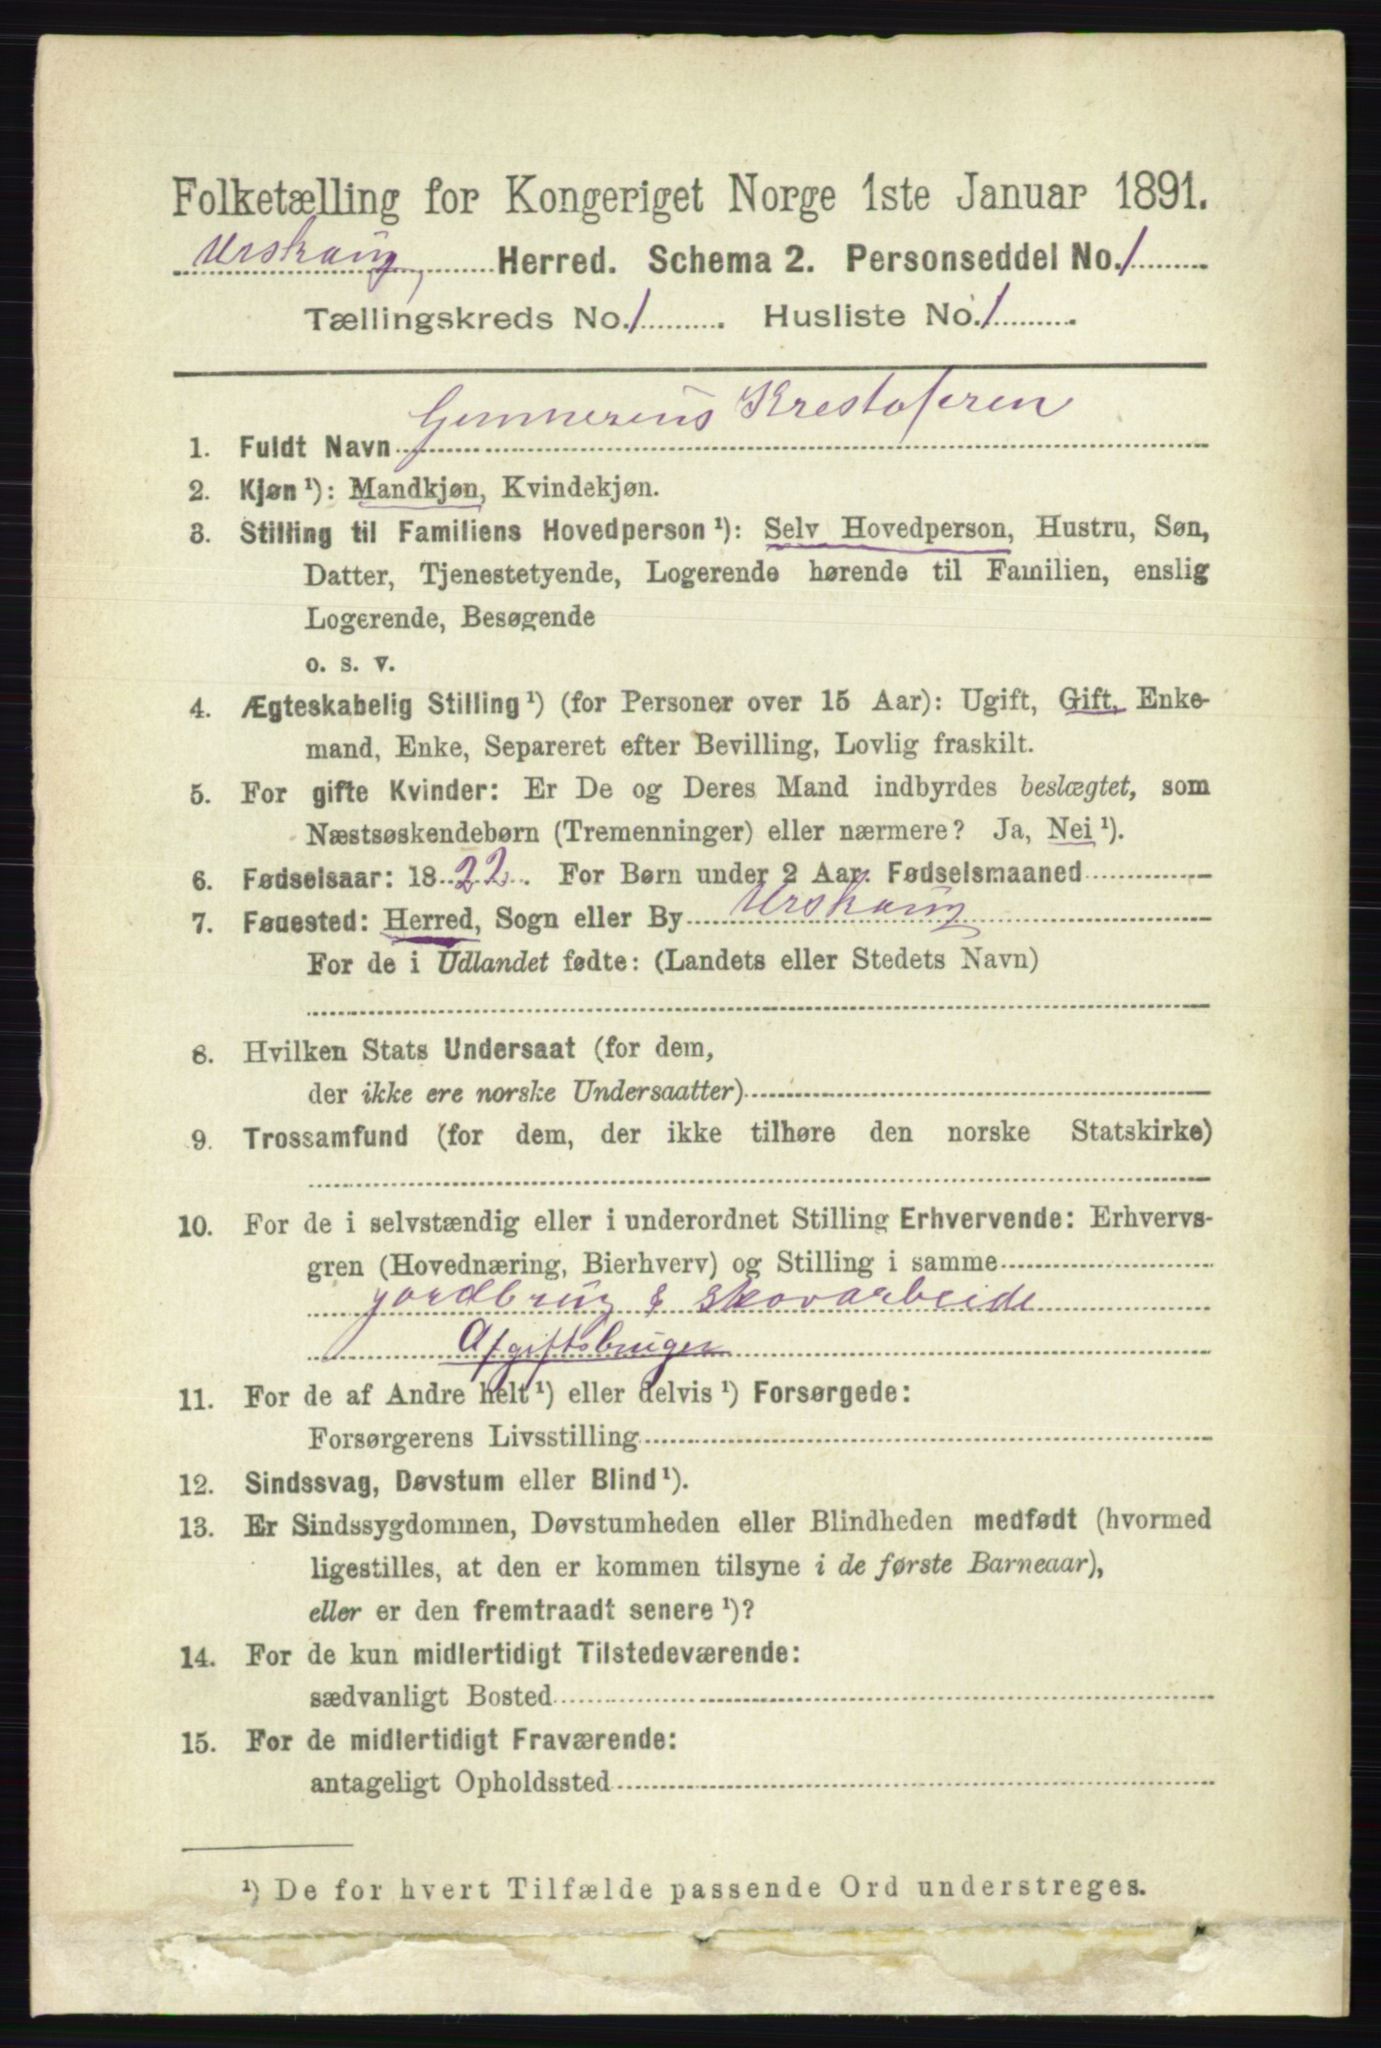 Folketælling for Kongeriget Norge 1ste Januar 1891.
Urskaug Herred. Schema 2. Personseddel No. 1
Tællingskreds No. 1. Husliste No. 1.
1. Fuldt Navn Gunnerius Krestofersen
2. Kjøn ¹): Mandkjøn, Kvindekjøn.
3. Stilling til Familiens Hovedperson ¹): Selv Hovedperson, Hustru, Søn,
Datter, Tjenestetyende, Logerende hørende til Familien, enslig
Logerende, Besøgende
o. s. v.
4. Ægteskabelig Stilling ¹) (for Personer over 15 Aar): Ugift, Gift, Enke-
mand, Enke, Separeret efter Bevilling, Lovlig fraskilt.
5. For gifte Kvinder: Er De og Deres Mand indbyrdes beslægtet, som
Næstsøskendebørn (Tremenninger) eller nærmere? Ja, Nei ¹).
6. Fødselsaar: 1822. For Børn under 2 Aar: Fødselsmaaned
7. Fødested: Herred, Sogn eller By Urskaug
For de i Udlandet fødte: (Landets eller Stedets Navn)
8. Hvilken Stats Undersaat (for dem,
der ikke ere norske Undersaatter)
9. Trossamfund (for dem, der ikke tilhøre den norske Statskirke)
10. For de i selvstændig eller i underordnet Stilling Erhvervende: Erhvervs-
gren (Hovednæring, Bierhverv) og Stilling i samme
jordbrug & skovarbeide
Afgiftsbruger
11. For de af Andre helt ¹) eller delvis ¹) Forsørgede:
Forsørgerens Livsstilling
12. Sindssvag, Døvstum eller Blind ¹).
13. Er Sindssygdommen, Døvstumheden eller Blindheden medfødt (hvormed
ligestilles, at den er kommen tilsyne i de første Barneaar),
eller er den fremtraadt senere ¹)?
14. For de kun midlertidigt Tilstedeværende:
sædvanligt Bosted
15. For de midlertidigt Fraværende:
antageligt Opholdssted
¹) De for hvert Tilfælde passende Ord understreges.